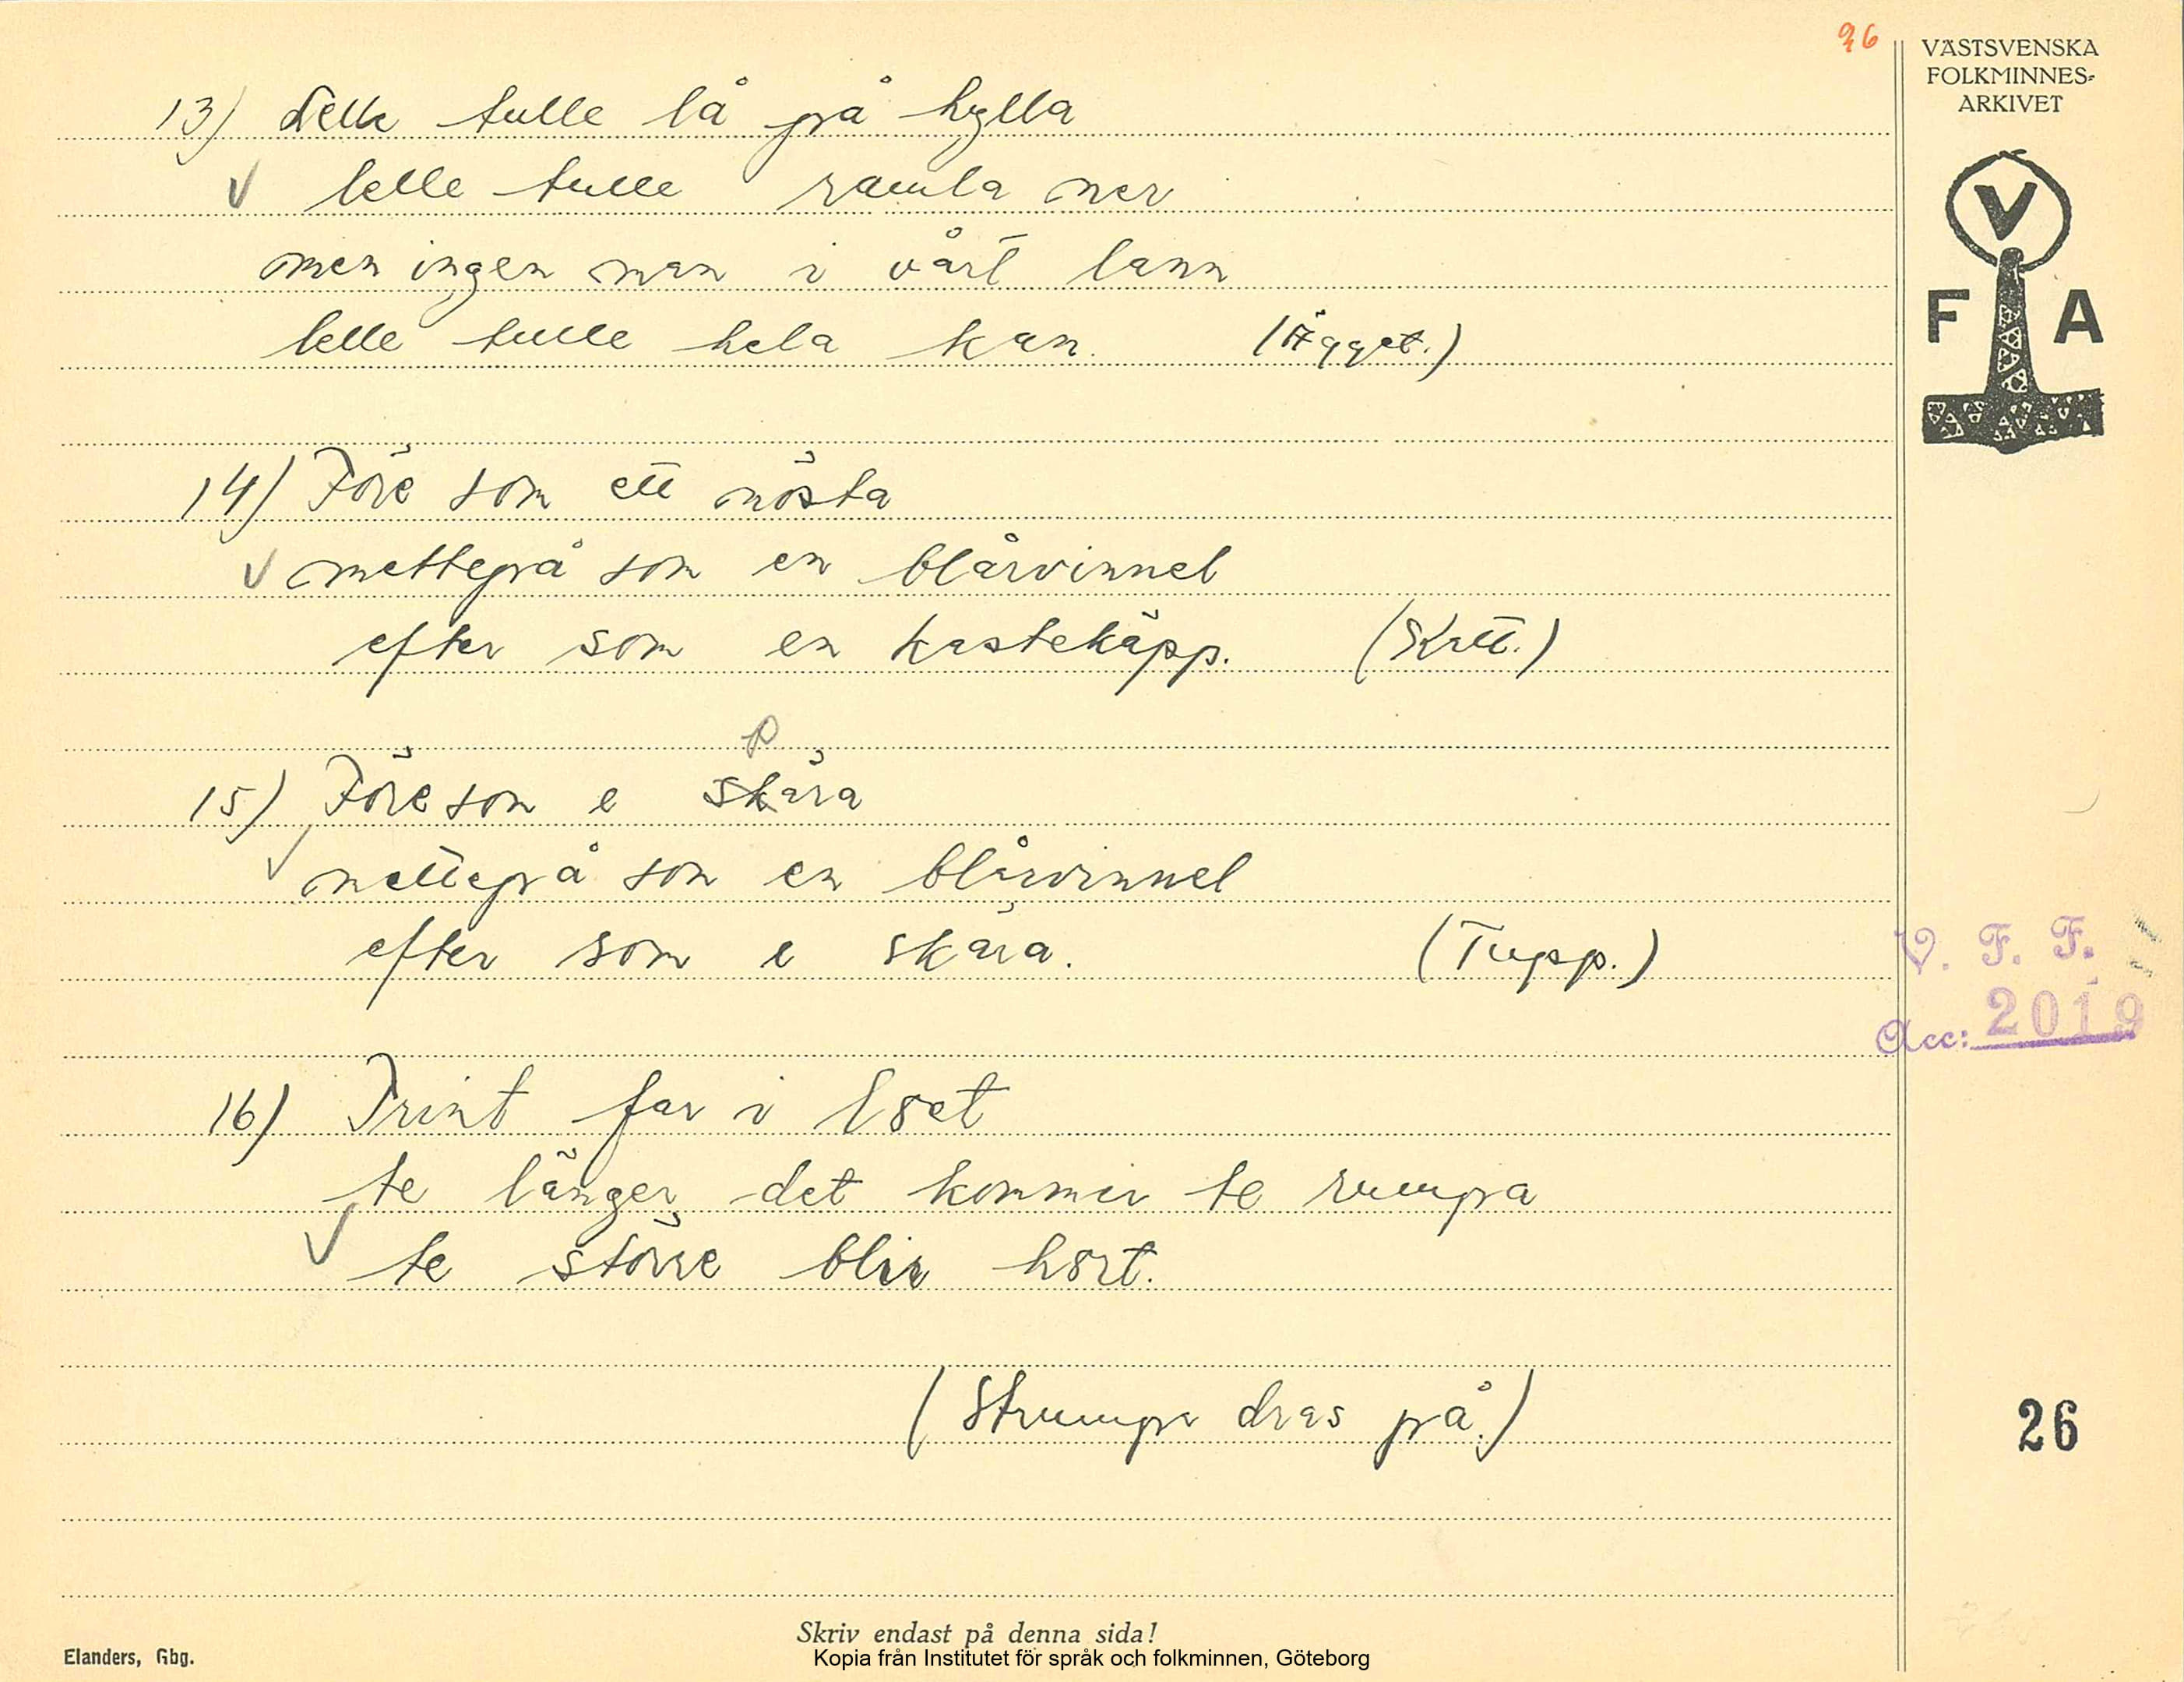 96
VÄSTSVENSKA
FOLKMINNES-
ARKIVET
V
F A
13) Lelle tulle lå på hylla
V lelle tulle ramla ner
men ingen man i vårt lann
lelle tulle hela kan. (Ägget.)
14) Före som ett nösta
V mettepå som en blårvinnel
efter som en kastekäpp. (Katt.)
p
15) Före som e skära
V mettepå som en blårvinnel
efter som e skära. (Tupp.)
V. F. F.
Acc: 2019
16) Trint far i
te länger det kommer te rumpa
V te större blir
(Strumpa dras på.)
26
Skriv endast på denna sida!
Elanders, Gbg.
Kopia från Institutet för språk och folkminnen, Göteborg